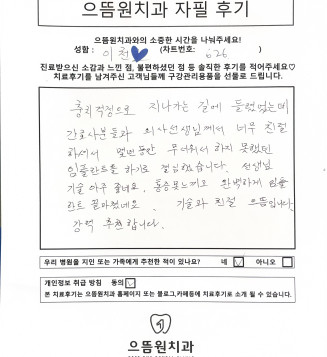 으뜸원치과 자필 후기
으뜸원치과와의 소중한 시간을 나눠주세요!
성함 : 이천 (차트번호: 626 )
진료받으신 소감과 느낀 점, 불편하셨던 점 등 솔직한 후기를 적어주세요♡
치료후기를 남겨주신 고객님들께 구강관리용품을 선물로 드립니다.
충치걱정으로 지나가는 길에 들렸었는데
간호사분들과 의사선생님께서 너무 친절
하셔서 몇년동안 무서워서 하지 못했던
임플란트를 하기로 결심했습니다. 선생님
기술 아주 좋네요. 통증못느끼고 완벽하게 임플
란트 끝마쳤네요. 기술과 친절 으뜸입니다.
강력 추천합니다.
우리 병원을 지인 또는 가족에게 추천한 적이 있나요? 네 아니오
개인정보 취급 방침 동의
본 치료후기는 으뜸원치과 홈페이지 또는 블로그,카페등에 치료후기로 소개 될 수 있습니다.
으뜸원치과